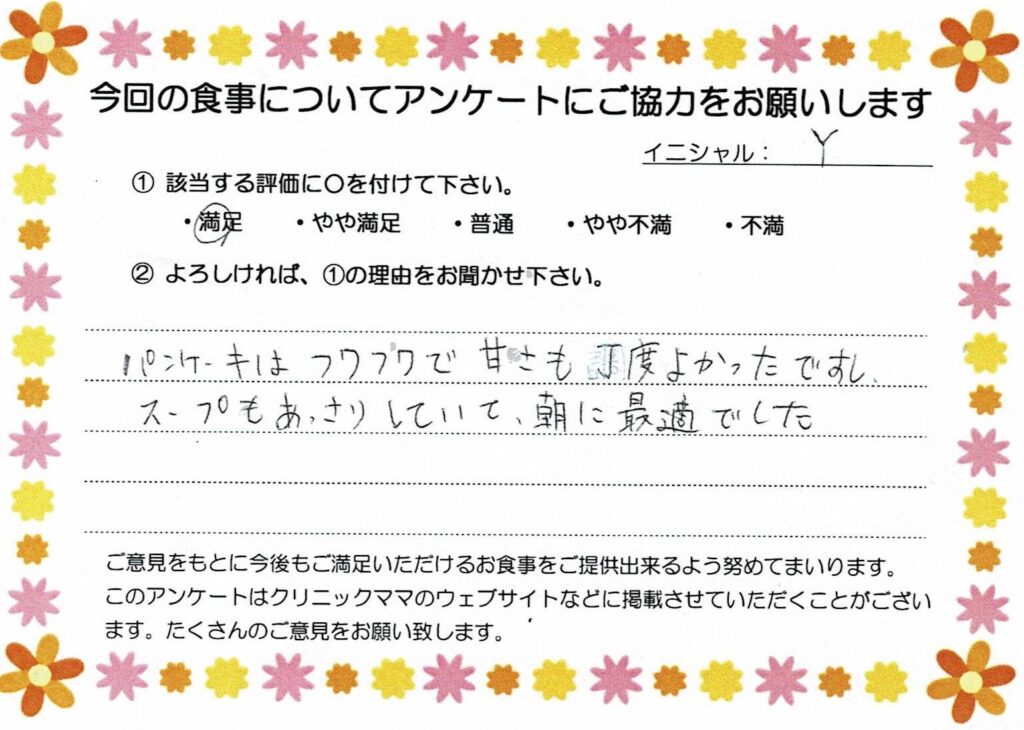 今回の食事についてアンケートにご協力をお願いします
イニシャル： Y
① 該当する評価に〇を付けて下さい。
・満足 ・やや満足 ・普通 ・やや不満 ・不満
② よろしければ、①の理由をお聞かせ下さい。
パンケーキは フワフワで 甘さも 丁度よかったですし、
スープもあっさりしていて、朝に最適でした
ご意見をもとに今後もご満足いただけるお食事をご提供出来るよう努めてまいります。
このアンケートはクリニックママのウェブサイトなどに掲載させていただくことがござい
ます。たくさんのご意見をお願い致します。